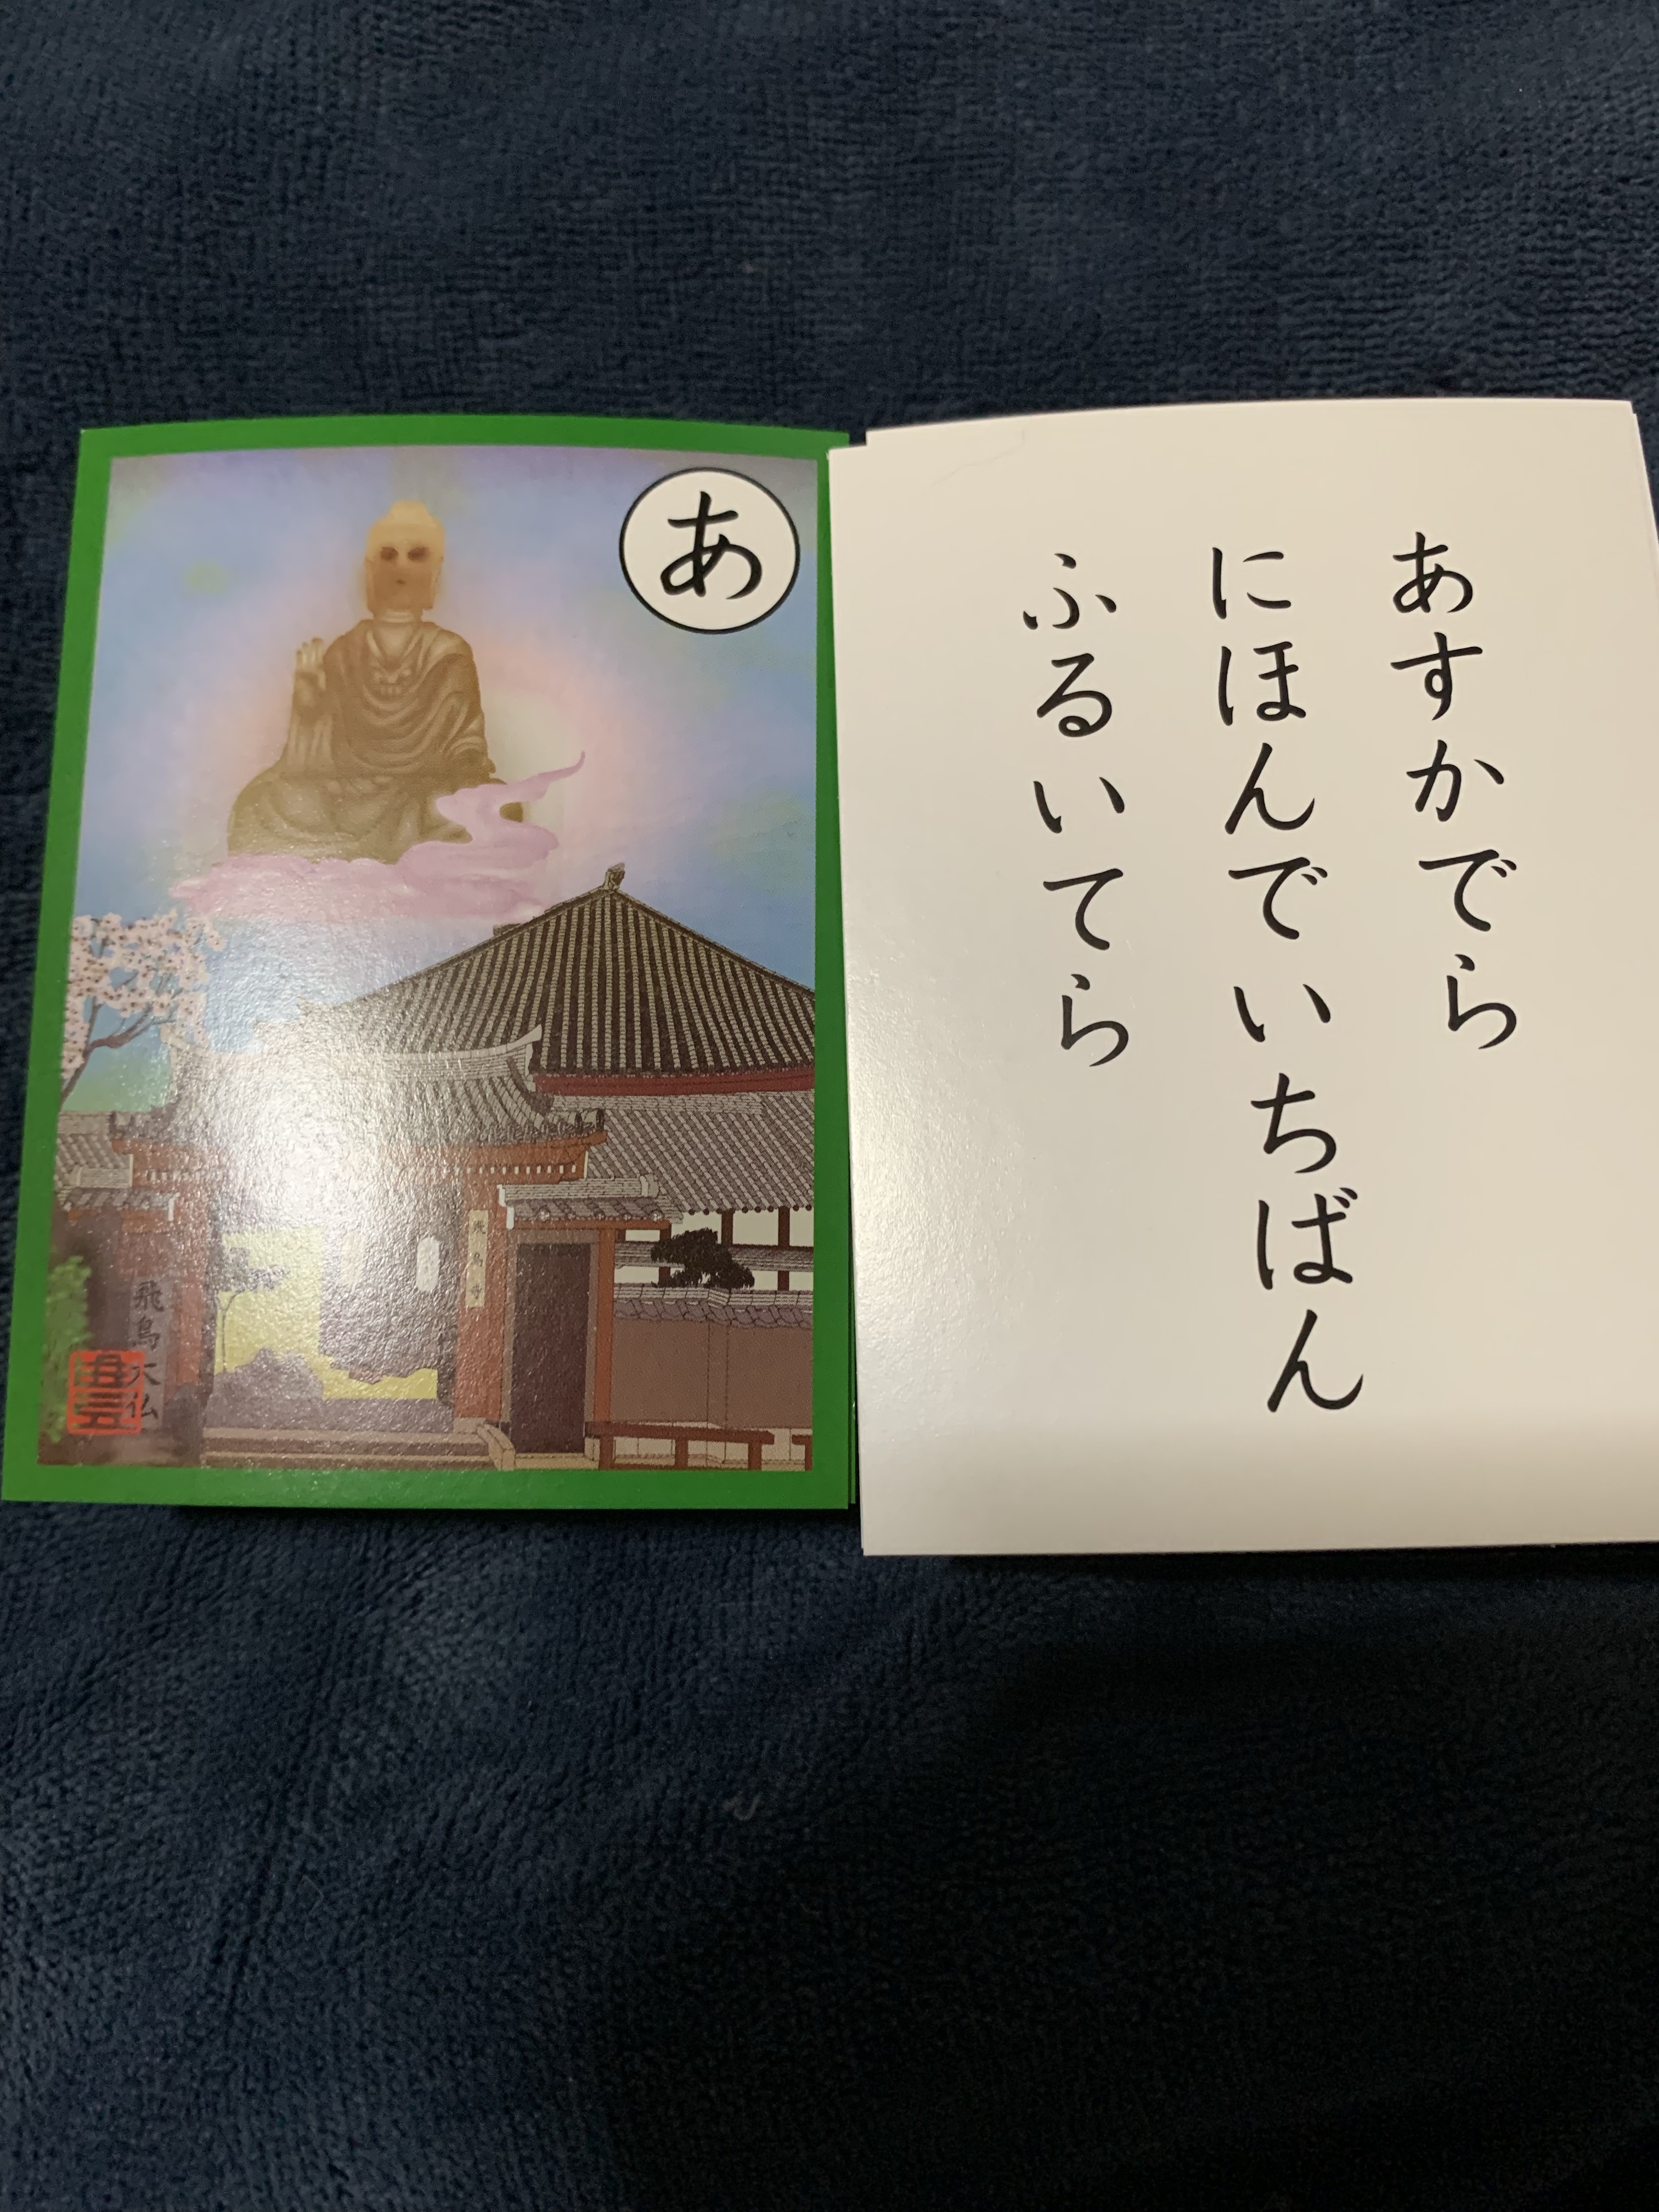 あ
飛鳥大仏
飛鳥寺
あすかでら
にほんでいちばん
ふるいてら